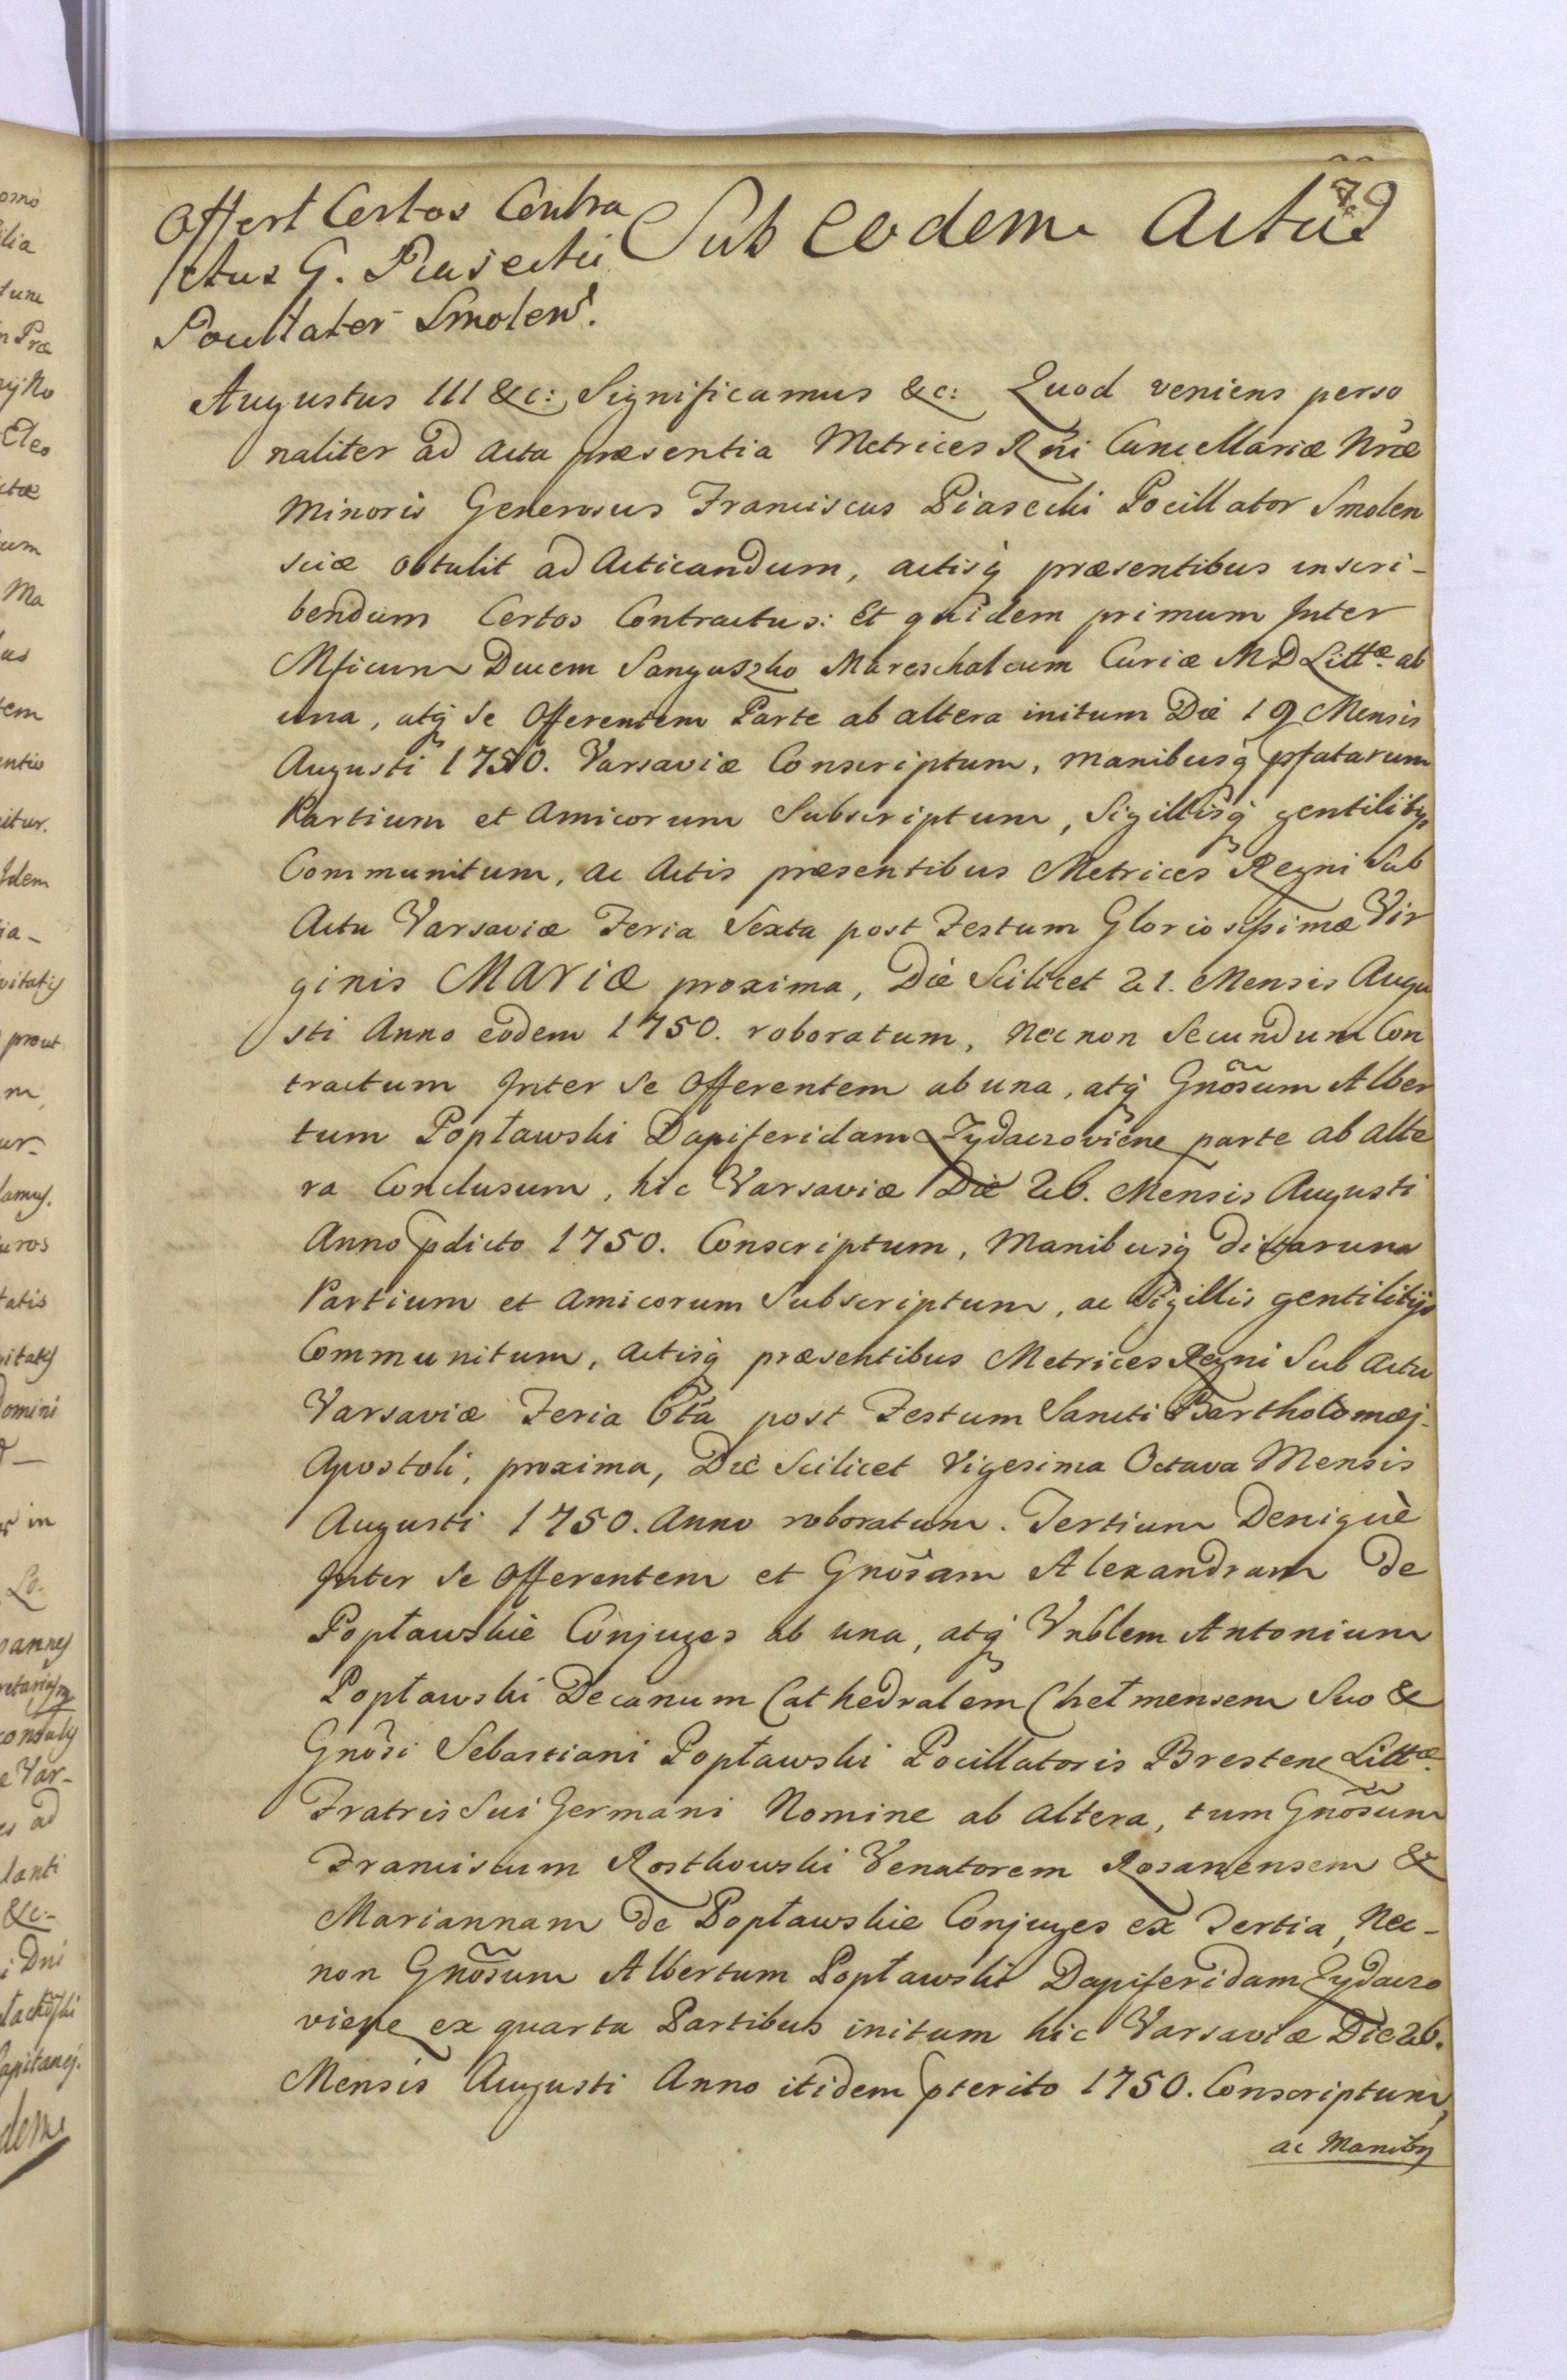 79
Offert Certos Contra
ctus G. Piasecki
Pocillator Smolens.
Sub eodem Actu
Augustus III &c: Significamus &c: Quod veniens perso
naliter ad Acta præsentia Metrices Rñi Cancellariæ Nræ
Minoris Generosus Franciscus Piasecki Pocillator Smolen
sciæ obtulit ad Acticandum, actisq́ præsentibus inscri-
bendum Certos Contractus: Et quidem primum Inter
Mficum Ducem Sanguszko Mareschalcum Curiæ M D Littæ ab
una, atq́ se Offerentem Parte ab altera initum Die 19 Mensis
Augusti 1750. Varsaviæ Conscriptum, manibusq́ pfatarum
Partium et Amicorum Subscriptum, Sigillisq́ gentilitijs
Communitum, ac Actis præsentibus Metrices Regni Sub
Actu Varsaviæ Feria Sexta post Festum Gloriosissimæ Vir
ginis MARIÆ proxima, Die Scilicet 21. Mensis Augu
sti Anno eodem 1750. roboratum, nec non Secundum Con
tractum Inter se Offerentem ab una, atq́ Gnõsum Alber
tum Popławski Dapiferidam Zydaczoviene parte ab alte
ra Conclusum, hic Varsaviæ Die 26. Mensis Augusti
Anno pdicto 1750. Conscriptum, Manibusq́ dictarum
Partium et Amicorum Subscriptum, ac Sigillis gentilitijs
Communitum, actisq́ præsentibus Metrices Regni Sub Actu
Varsaviæ Feria 6tã post Festum Sancti Bartholomæj
Apostoli, proxima, Die Scilicet Vigesima Octava Mensis
Augusti 1750. Anno roboratum. Tertium Deniquè
Inter se Offerentem et Gnõsam Alexandram de
Popławskie Conjuges ab una, atq́ Vnblem Antonium
Popławski Decanum Cathedralem Chełmensem Suo &
Gnõsi Sebastiani Popławski Pocillatoris Brestene Littæ.
Fratris Sui Germani Nomine ab altera, tum Gnõsum
Franciscum Rostkowski Venatorem Rosanensem &
Mariannam de Popławskie Conjuges ex Tertia, Nec-
non Gnõsum Albertum Popławski Dapiferidam Zydaczo
viene ex quarta Partibus initum hic Varsaviæ Die 26.
Mensis Augusti Anno itidem pterito 1750. Conscriptum,
ac Maniby